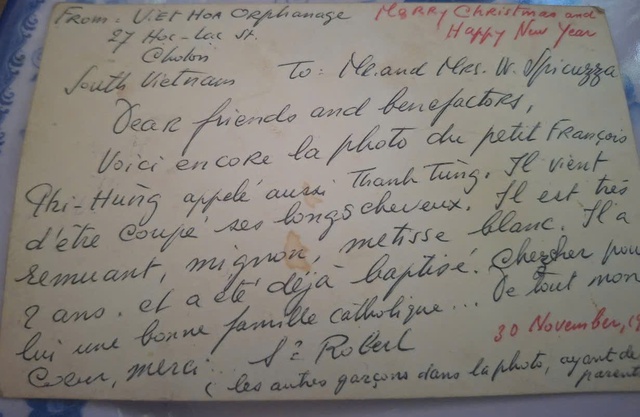 From: Viet Hoa Orphanage
Merry Christmas and
27 Hoc-Lac St.
Happy New Year
Cholon
South Vietnam
To: Mr. and Mrs. W. Spicuzza
Dear friends and benefactors,
Voici encore la photo du petit François
Phi-Hùng appelé aussi Thanh Tùng. Il vient
d'être coupé ses longs cheveux. Il est très
remuant, mignon, metisse blanc. Il a
2 ans. et a été déjà baptisé. Chercher pour
lui une bonne famille catholique... De tout mon
30 November, 19
Coeur, merci... Sr Robert
( les autres garçons dans la photo, ayant de
parents